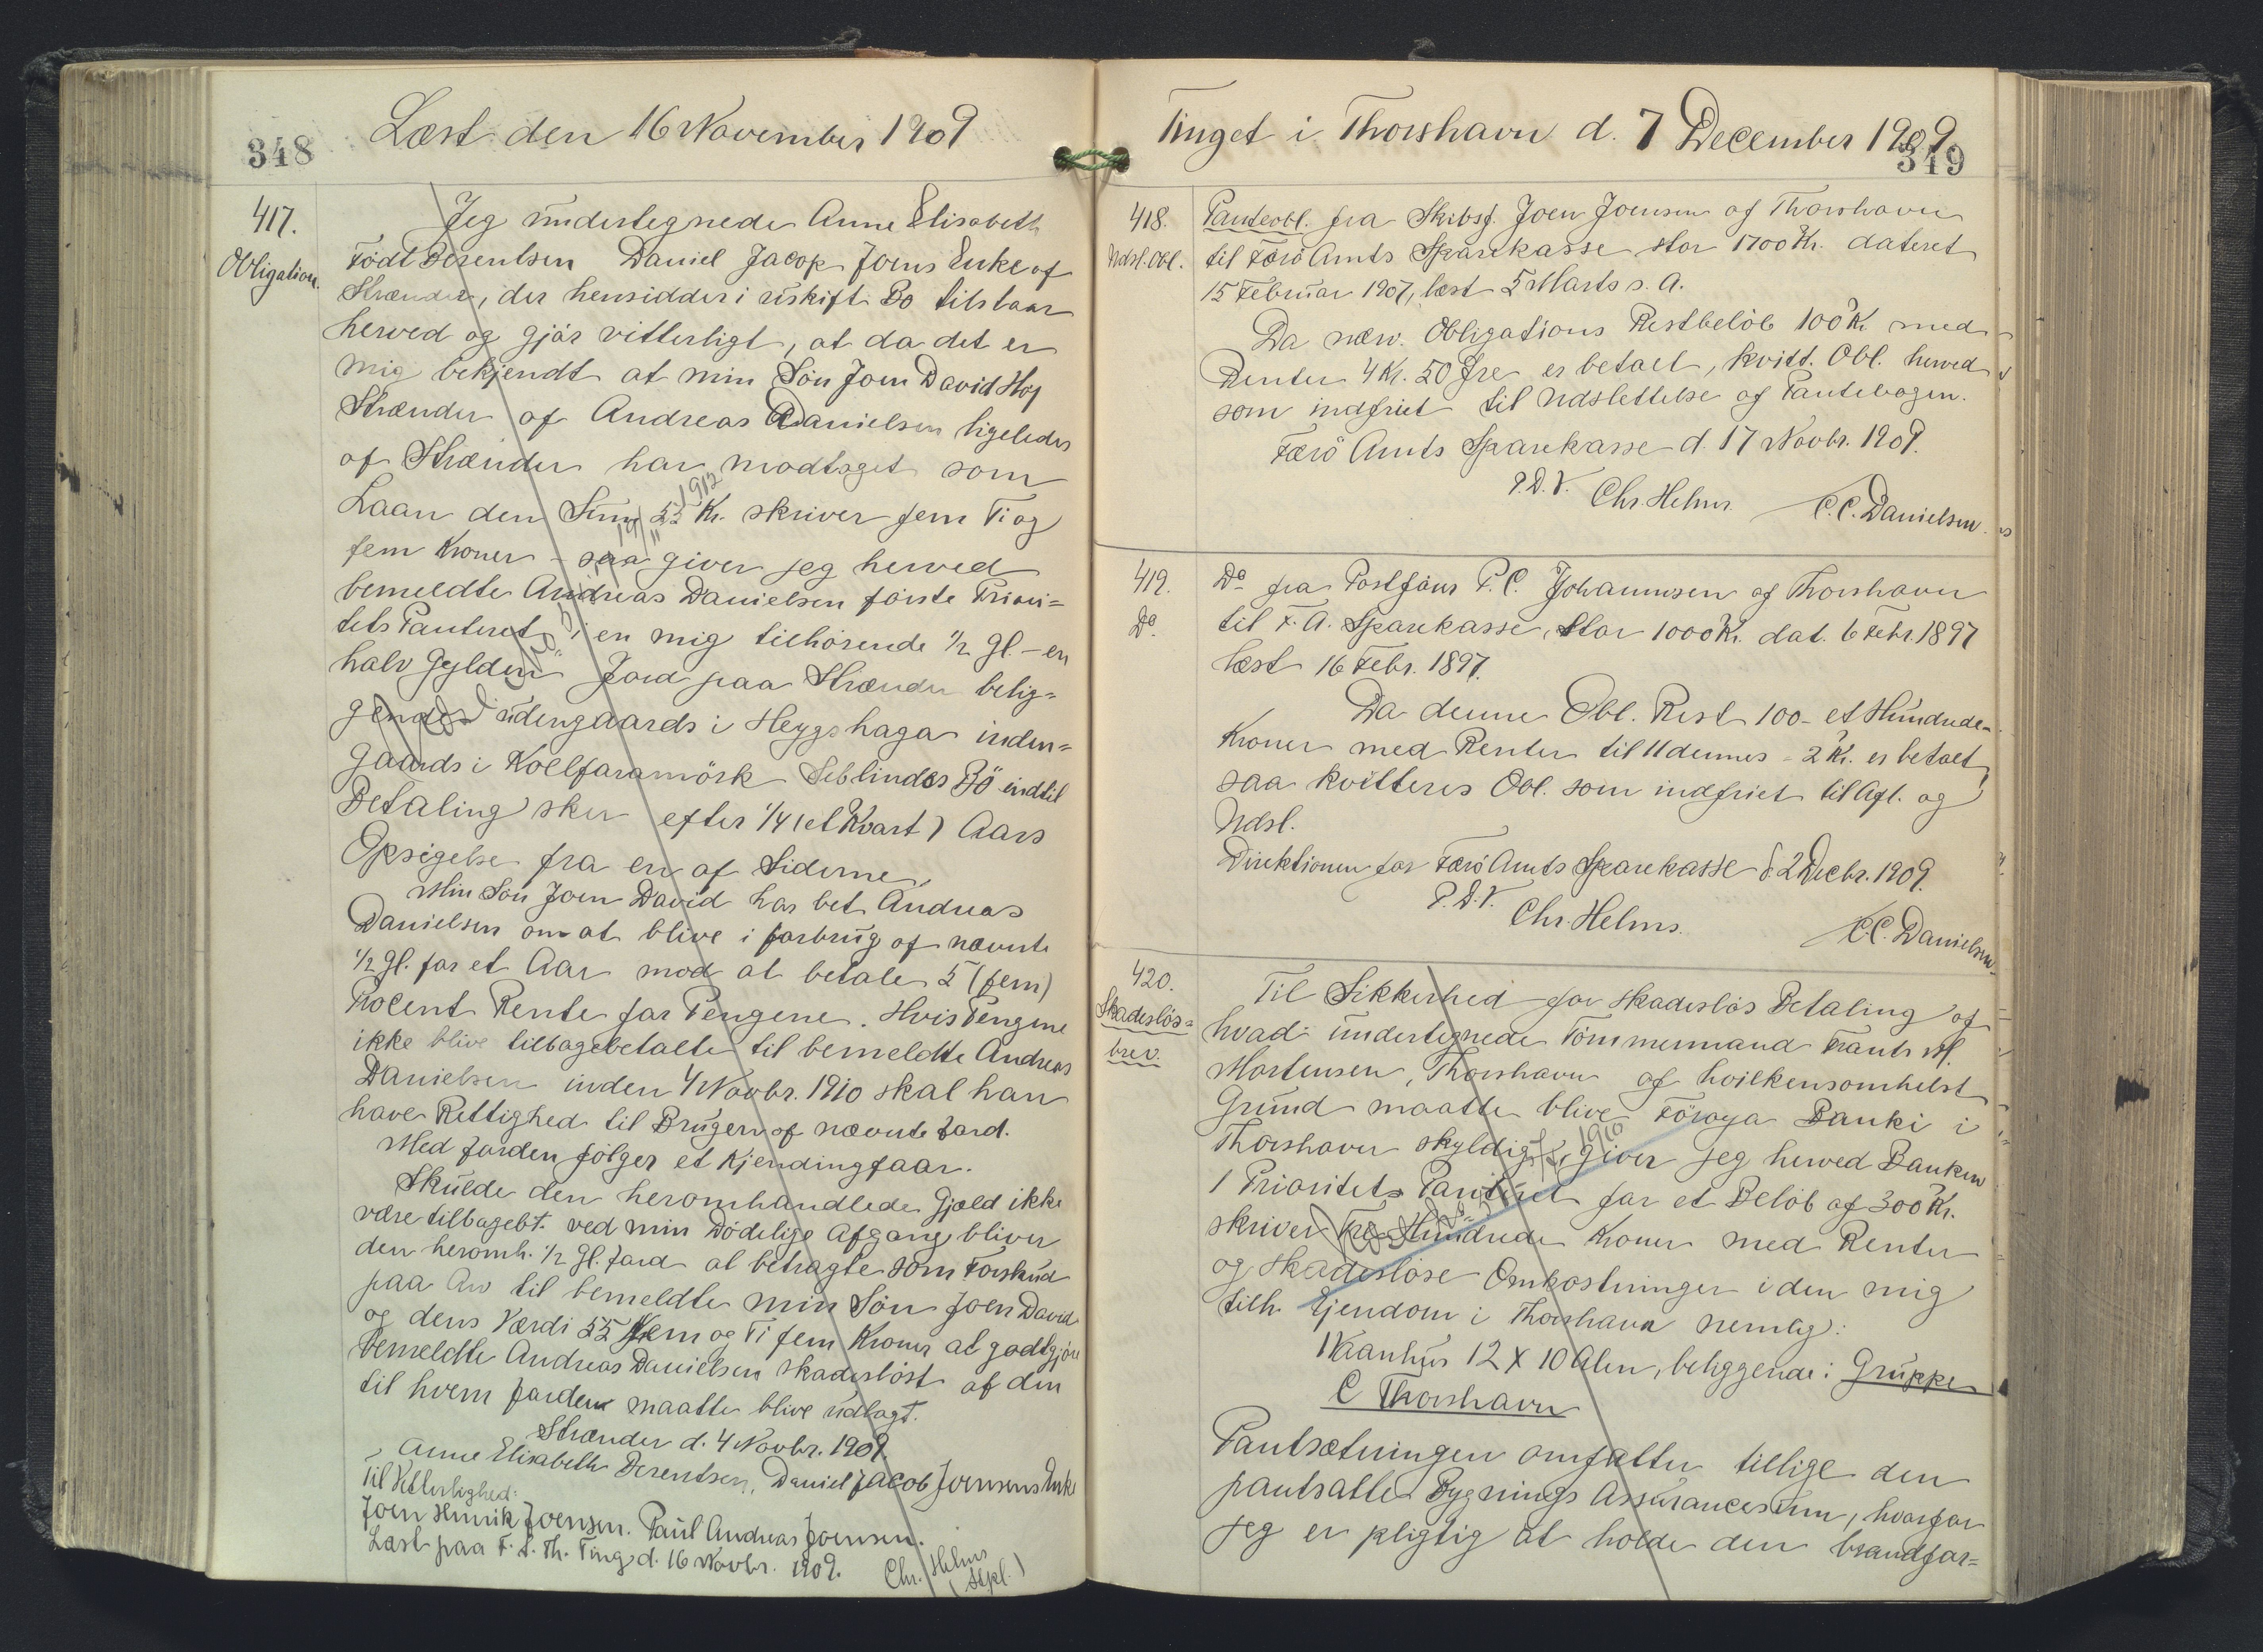 348
Læst den 16 November 1909
417.
Obligation.
Jeg undertegnede Anne Elisabeth
Född Berentsen Daniel Jacop Joens Enke af
Strænder, der hensidder i uskift Bo tilstaar
herved og gjör vitterligt, at da det er
mig bekjendt at min Sön Joen David Høj
Strænder af Andreas Danielsen ligeledes
af Strænder har modtaget som
Laan den Sum 55 Kr. skriver fem Ti og
fem Kroner - saa giver jeg herved
bemeldte Andreas Danielsen förste Priori=
tets Panteret i en mig tilhörende ½ Gl. - en
halv Gylden Jord paa Strænder belig=
gende udengaards i Heygshaga inden=
gaards i Koelfaramörk Seblindes Bö indtil
Betaling sker efter ¼ (et Kvart) Aars
Opsigelse fra en af Siderne,
Min Sön Joen David har bet Andreas
Danielsen om at blive i forbrug af nævnte
½ Gl. for et Aar mod at betale 5 (fem)
Procent Rente for Pengene. Hvis Pengene
ikke blive tilbagebetalte til bemeldte Andreas
Danielsen inden 4 Novbr. 1910 skal han
have Rettighed til Brugen af nævnte Jord.
Med Jorden fölger et Kjendingfaar.
Skulde den heromhandlede Gjæld ikke
være tilbagebt. ved min Dödelige Afgang bliver
den heromh. ½ Gl. Jord at betragte som Forskud
paa Arv til bemeldte min Sön Joen David
og dens Værdi 55 Fem og Ti fem Kroner at godtgjöre
bemeldte Andreas Danielsen skadeslöst af den
til hvem Jorden maatte blive udlagt.
Strænder d. 4 Novbr. 1909.
Anne Elisabeth Berentsen, Daniel Jacob Joensens Enke
Til Vitterlighed:
Joen Henrik Joensen. Paul Andreas Joensen.
Læst paa F. S. Th. Ting d. 16 Novbr. 1909.
Chr. Helms
(Stpl.)
Tinget i Thorshavn d. 7 December 1909.
349
418.
Udsl. Obl.
Panteobl. fra Skibsf. Joen Joensen af Thorshavn
til Færö Amts Sparekasse stor 1700 Kr. dateret
15 Februar 1907, læst 5 Marts s. A.
Da næv. Obligations Restbelöb 100 Kr. med
Renter 4 Kr. 50 Øre er betalt, kvitt. Obl. herved
som indfriet til Udslettelse af Pantebogen.
Færö Amts Sparekasse d. 17 Novbr. 1909.
P. D. V.
Chr. Helms. C. C. Danielsen
419.
Do.
Do fra Postförer P. C. Johannesen af Thorshavn
til F. A. Sparekasse, stor 1000 Kr. dat. 6 Febr. 1897
læst 16 Febr. 1897.
Da denne Obl. Rest 100 - et Hundrede -
Kroner med Renter til 11 dennes - 2 Kr. er betalt,
saa kvitteres Obl. som indfriet til Afl. og
Udsl.
Direktionen for Færö Amts Sparekasse d. 2 Decbr. 1909.
P. D. V.
Chr. Helms. C. C. Danielsen
420.
Skadeslös=
brev.
Til Sikkerhed for skadeslös Betaling af
hvad undertegnede Tömmermand Frants M.
Mortensen, Thorshavn af hvilkensomhelst
Grund maatte blive Föroya Banki i
Thorshavn skyldig, giver jeg herved Banken
1 Prioritets Panteret for et Belöb af 300 Kr.
skriver Tre Hundrede Kroner med Renter
og skadeslöse Omkostninger i den mig
tilh. Ejendom i Thorshavn nemlig:
1 Vaanhus 12 X 10 Alen, beliggende: Gruppe
C Thorshavn
Pantsætningen omfatter tillige den
pantsatte Bygnings Assurancesum, hvorfor
jeg er pligtig at holde den brandfor=